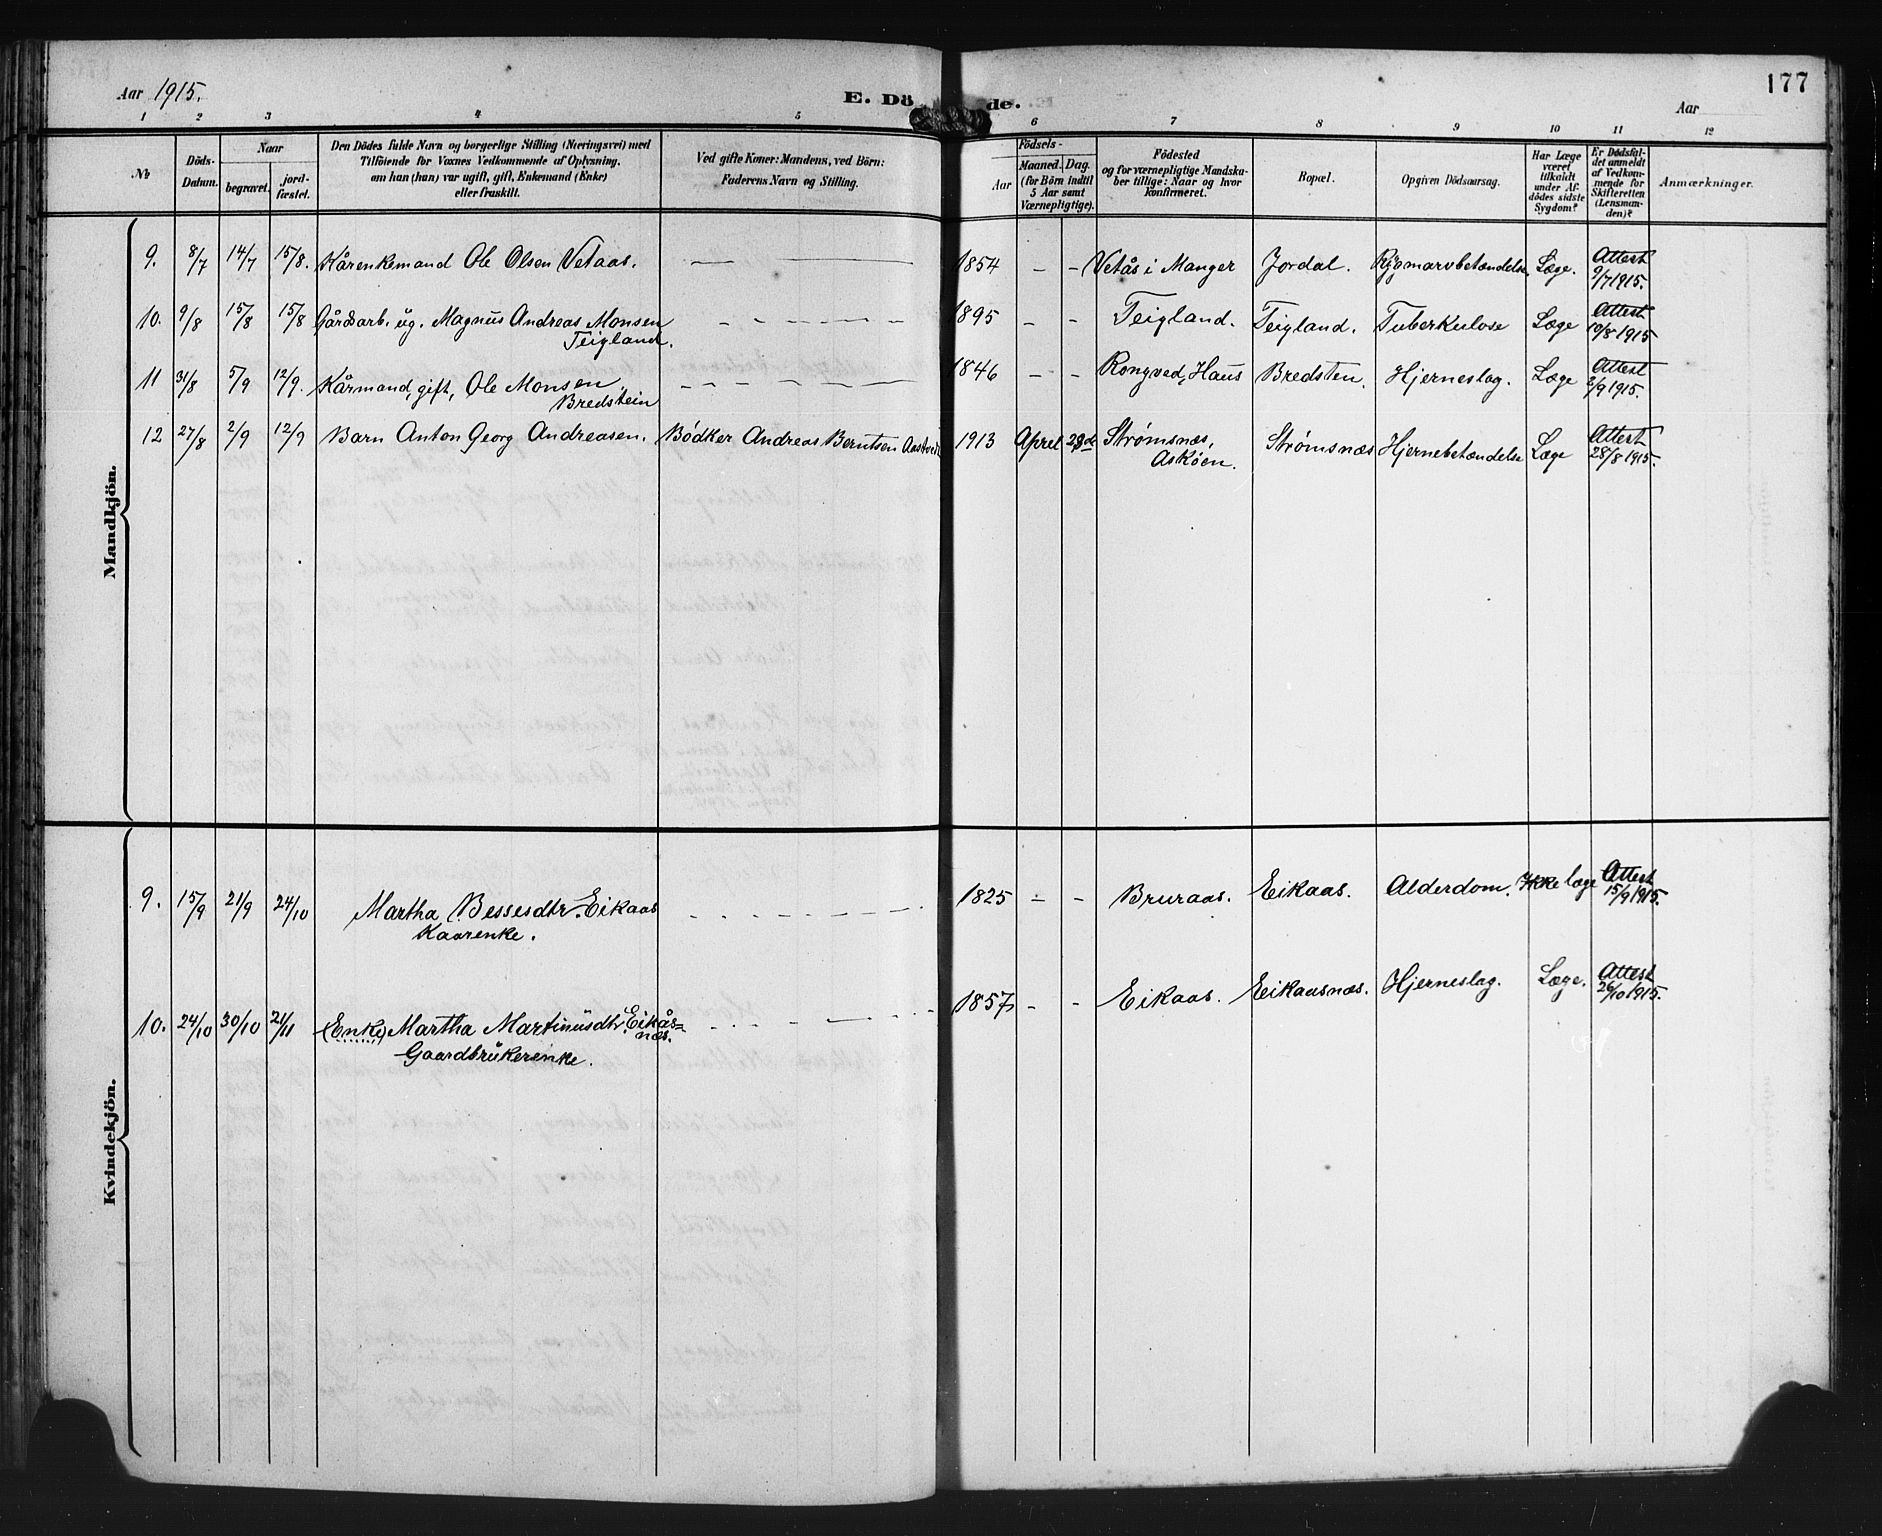 Aar 1915.
E. Dö de.
Aar
177
1 2 3 4 5 6 7 8 9 10 11 12
No
Döds-Datum.
Naar
begravet.
jord-fæstet.
Den Dödes fulde Navn og borgerlige Stilling (Næringsvei) med
Tilföiende for Voxnes Vedkommende af Oplysning,
om han (hun) var ugift, gift, Enkemand (Enke)
eller fraskilt.
Ved gifte Koner: Mandens, ved Börn:
Faderens Navn og Stilling.
Födsels-
Aar
Maaned. Dag.
(for Börn indtil
5 Aar samt
Værnepligtige).
Födested
og for værnepligtige Mandska-
ber tillige: Naar og hvor
konfirmeret.
Bopæl.
Opgiven Dödsaarsag.
Har Læge
været
tilkaldt
under Af-
dödes sidste
Sygdom?
Er Dødsfal-
det anmeldt
af Vedkom-
mende for
Skifteretten
(Lensman-
den)?
Anmærkninger.
Mandkjön.
9. 8/7 14/7 15/8. Kårenkemand Ole Olsen Vetaas. — — 1854 – – Vetås i Manger Jordal. Rygmarvbetændelse. Læge. Attest
9/7 1915.
10. 9/8 15/8 15/8 Gårdsarb. ug. Magnus Andreas Monsen 1895 – – Teigland. Teigland. Tuberkulose Læge Attest
Teigland. 10/8 1915
11 31/8 5/9 12/9. Kårmand, gift, Ole Monsen 1846 – – Rongved, Haus Bredsten. Hjerneslag. Læge Attest
Bredstein 2/9 1915.
12 27/8 2/9 12/9 Barn Anton Georg Andreasen. Bödker Andreas Berntsen 1913 April Strømsnæs, Strømsnæs Hjernebetændelse Læge Attest
Askøen. 28/8 1915.
Kvindekjön.
9. 15/9 21/9 24/10 Martha Bessesdtr. Eikaas 1825 – – Bruraas. Eikaas. Alderdom. Ikke læge Attest
Kaarenke. 15/9 1915.
10. 24/10 30/10 21/11 (Enke) Martha Martinusdtr. Eikås= 1857 – – Eikaas. Eikaasnæs. Hjerneslag. Læge. Attest
næs. 26/10 1915.
Gaardbrukerenke.